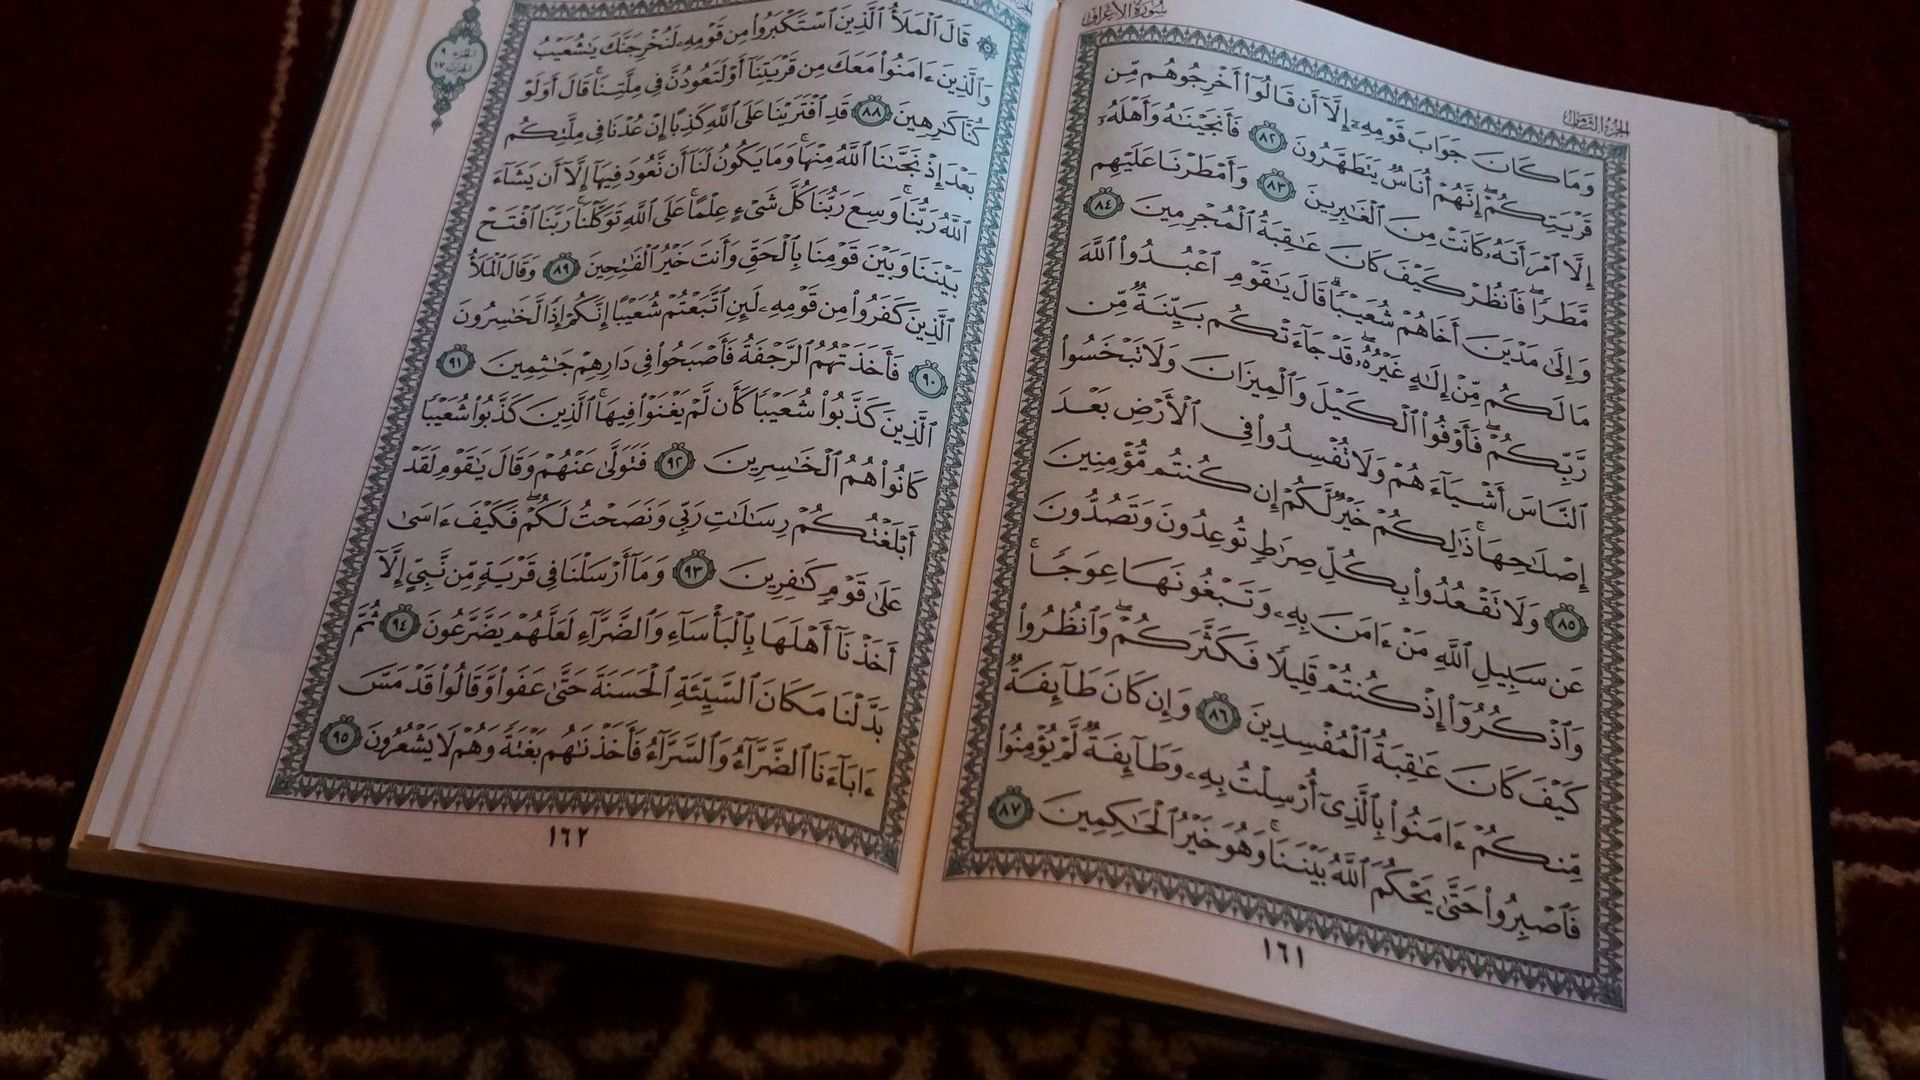 سُورَةُ الأَعْرَافِ
الجُزْءُ الثَّامِنُ
وَمَا كَانَ جَوَابَ قَوْمِهِۦٓ إِلَّآ أَن قَالُوٓا۟ أَخْرِجُوهُم مِّن
قَرْيَتِكُمْ ۖ إِنَّهُمْ أُنَاسٌ يَتَطَهَّرُونَ ٨٢ فَأَنجَيْنَٰهُ وَأَهْلَهُۥٓ
إِلَّا ٱمْرَأَتَهُۥ كَانَتْ مِنَ ٱلْغَٰبِرِينَ ٨٣ وَأَمْطَرْنَا عَلَيْهِم
مَّطَرًا ۖ فَٱنظُرْ كَيْفَ كَانَ عَٰقِبَةُ ٱلْمُجْرِمِينَ ٨٤
وَإِلَىٰ مَدْيَنَ أَخَاهُمْ شُعَيْبًا ۗ قَالَ يَٰقَوْمِ ٱعْبُدُوا۟ ٱللَّهَ
مَا لَكُم مِّنْ إِلَٰهٍ غَيْرُهُۥ ۖ قَدْ جَآءَتْكُم بَيِّنَةٌ مِّن
رَّبِّكُمْ ۖ فَأَوْفُوا۟ ٱلْكَيْلَ وَٱلْمِيزَانَ وَلَا تَبْخَسُوا۟
ٱلنَّاسَ أَشْيَآءَهُمْ وَلَا تُفْسِدُوا۟ فِى ٱلْأَرْضِ بَعْدَ
إِصْلَٰحِهَا ۚ ذَٰلِكُمْ خَيْرٌ لَّكُمْ إِن كُنتُم مُّؤْمِنِينَ
٨٥ وَلَا تَقْعُدُوا۟ بِكُلِّ صِرَٰطٍ تُوعِدُونَ وَتَصُدُّونَ
عَن سَبِيلِ ٱللَّهِ مَنْ ءَامَنَ بِهِۦ وَتَبْغُونَهَا عِوَجًا ۚ
وَٱذْكُرُوٓا۟ إِذْ كُنتُمْ قَلِيلًا فَكَثَّرَكُمْ ۖ وَٱنظُرُوا۟
كَيْفَ كَانَ عَٰقِبَةُ ٱلْمُفْسِدِينَ ٨٦ وَإِن كَانَ طَآئِفَةٌ
مِّنكُمْ ءَامَنُوا۟ بِٱلَّذِىٓ أُرْسِلْتُ بِهِۦ وَطَآئِفَةٌ لَّمْ يُؤْمِنُوا۟
فَٱصْبِرُوا۟ حَتَّىٰ يَحْكُمَ ٱللَّهُ بَيْنَنَا ۚ وَهُوَ خَيْرُ ٱلْحَٰكِمِينَ ٨٧
١٦١
الجزء ٩
الحزب ١٧
۞ قَالَ ٱلْمَلَأُ ٱلَّذِينَ ٱسْتَكْبَرُوا۟ مِن قَوْمِهِۦ لَنُخْرِجَنَّكَ يَٰشُعَيْبُ
وَٱلَّذِينَ ءَامَنُوا۟ مَعَكَ مِن قَرْيَتِنَآ أَوْ لَتَعُودُنَّ فِى مِلَّتِنَا ۚ قَالَ أَوَلَوْ
كُنَّا كَٰرِهِينَ ٨٨ قَدِ ٱفْتَرَيْنَا عَلَى ٱللَّهِ كَذِبًا إِنْ عُدْنَا فِى مِلَّتِكُم
بَعْدَ إِذْ نَجَّىٰنَا ٱللَّهُ مِنْهَا ۚ وَمَا يَكُونُ لَنَآ أَن نَّعُودَ فِيهَآ إِلَّآ أَن يَشَآءَ
ٱللَّهُ رَبُّنَا ۚ وَسِعَ رَبُّنَا كُلَّ شَىْءٍ عِلْمًا ۚ عَلَى ٱللَّهِ تَوَكَّلْنَا ۚ رَبَّنَا ٱفْتَحْ
بَيْنَنَا وَبَيْنَ قَوْمِنَا بِٱلْحَقِّ وَأَنتَ خَيْرُ ٱلْفَٰتِحِينَ ٨٩ وَقَالَ ٱلْمَلَأُ
ٱلَّذِينَ كَفَرُوا۟ مِن قَوْمِهِۦ لَئِنِ ٱتَّبَعْتُمْ شُعَيْبًا إِنَّكُمْ إِذًا لَّخَٰسِرُونَ
٩٠ فَأَخَذَتْهُمُ ٱلرَّجْفَةُ فَأَصْبَحُوا۟ فِى دَارِهِمْ جَٰثِمِينَ ٩١
ٱلَّذِينَ كَذَّبُوا۟ شُعَيْبًا كَأَن لَّمْ يَغْنَوْا۟ فِيهَا ۚ ٱلَّذِينَ كَذَّبُوا۟ شُعَيْبًا
كَانُوا۟ هُمُ ٱلْخَٰسِرِينَ ٩٢ فَتَوَلَّىٰ عَنْهُمْ وَقَالَ يَٰقَوْمِ لَقَدْ
أَبْلَغْتُكُمْ رِسَٰلَٰتِ رَبِّى وَنَصَحْتُ لَكُمْ ۖ فَكَيْفَ ءَاسَىٰ
عَلَىٰ قَوْمٍ كَٰفِرِينَ ٩٣ وَمَآ أَرْسَلْنَا فِى قَرْيَةٍ مِّن نَّبِىٍّ إِلَّآ
أَخَذْنَآ أَهْلَهَا بِٱلْبَأْسَآءِ وَٱلضَّرَّآءِ لَعَلَّهُمْ يَضَّرَّعُونَ ٩٤ ثُمَّ
بَدَّلْنَا مَكَانَ ٱلسَّيِّئَةِ ٱلْحَسَنَةَ حَتَّىٰ عَفَوا۟ وَّقَالُوا۟ قَدْ مَسَّ
ءَابَآءَنَا ٱلضَّرَّآءُ وَٱلسَّرَّآءُ فَأَخَذْنَٰهُم بَغْتَةً وَهُمْ لَا يَشْعُرُونَ ٩٥
١٦٢